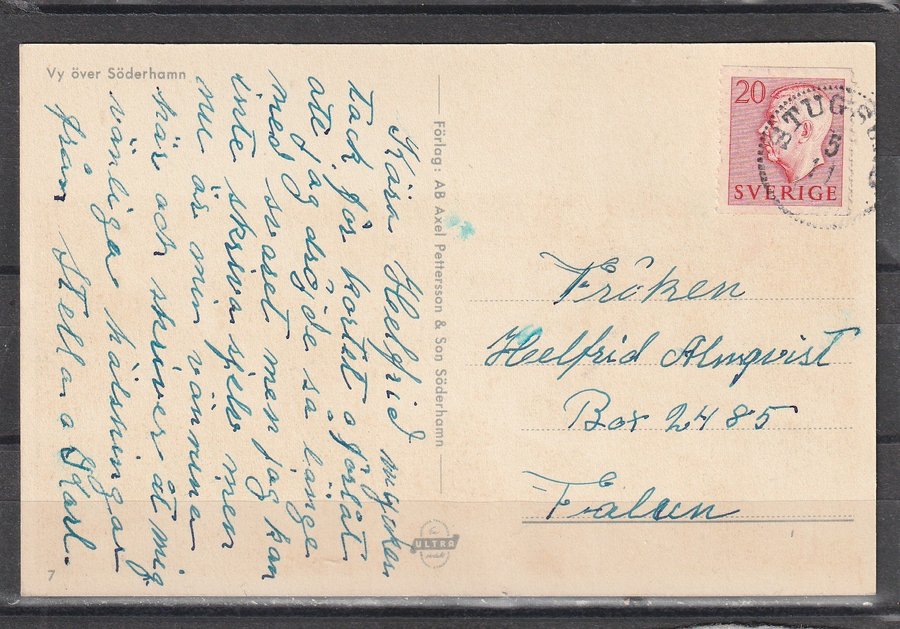 Vy över Söderhamn
Kära Helfrid mycken
tack för kortet o förlåt
att jag dröjde så länge
med svaret men jag kan
inte skriva själv men
nu är min väninna
här och skriver åt mig
vänliga hälsningar
från Stella o Karl.
Förlag: AB Axel Pettersson & Son Söderhamn
ULTRA
7
20
SVERIGE
STUGSUND
5
11
Fröken
Helfrid Almqvist
Box 2485
Falun